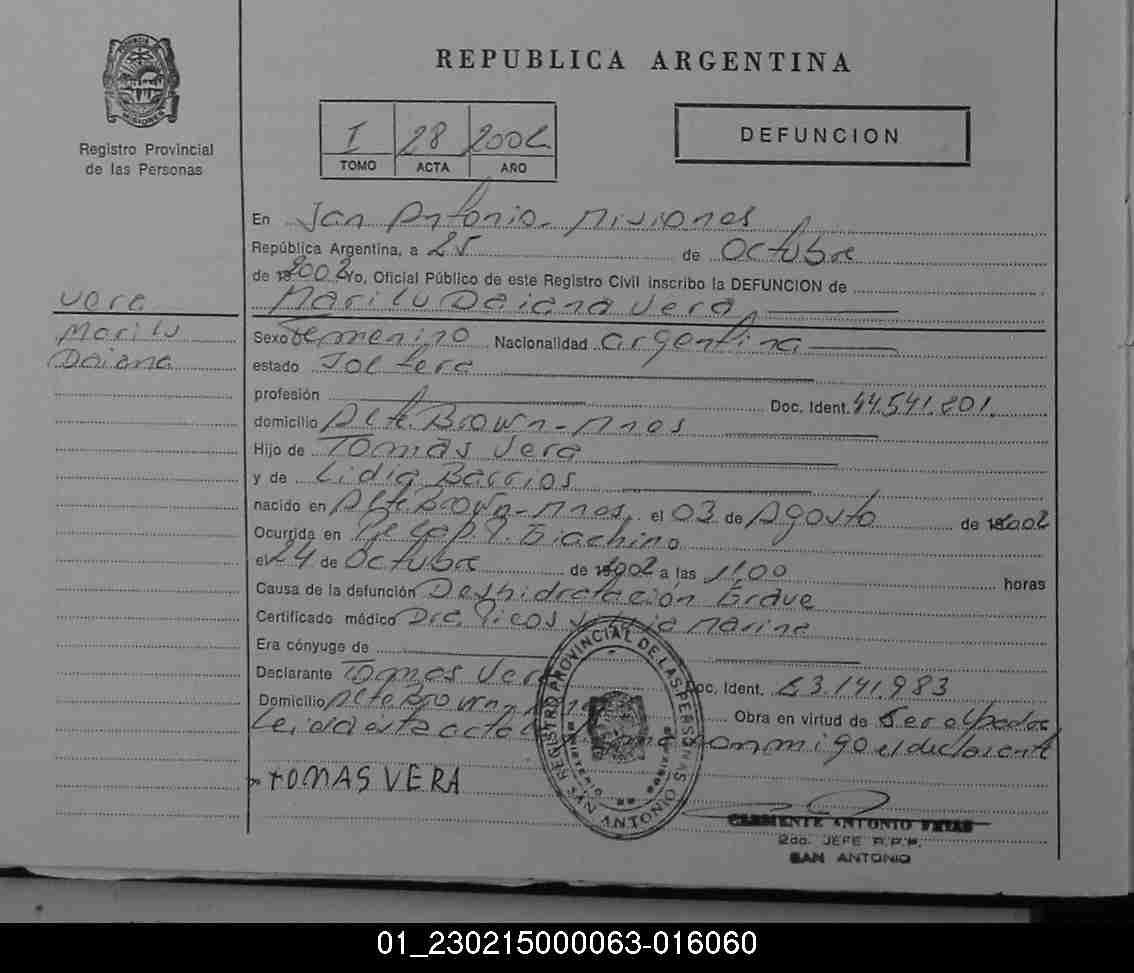 REPUBLICA ARGENTINA
Registro Provincial
de las Personas
I 28 2002
TOMO ACTA AÑO
DEFUNCION
Vera
Marilu
Daiana
En San Antonio - Misiones
República Argentina, a 25 de Octubre
de 2002 Yo, Oficial Público de este Registro Civil inscribo la DEFUNCION de
Marilu Daiana Vera
Sexo Femenino Nacionalidad argentina
estado Soltera
profesión Doc. Ident. 44.541.801.
domicilio Alte. Brown - Mnes
Hijo de Tomas Vera
y de Lidia Barrios
nacido en Alte Brown - Mnes. el 03 de Agosto de 2002
Ocurrida en
el 24 de Octubre de 2002 a las 11:00 horas
Causa de la defunción Deshidratación Grave
Certificado médico Dra. Marina
Era cónyuge de
Declarante Tomas Vera Doc. Ident. 141.983
Domicilio Alte Brown - Obra en virtud de Ser el padre
Leida este acta conmigo el declarante
TOMAS VERA
REGISTRO PROVINCIAL DE LAS PERSONAS
SAN ANTONIO
CLEMENTE ANTONIO
2do. JEFE R.P.P.
SAN ANTONIO
01_230215000063-016060